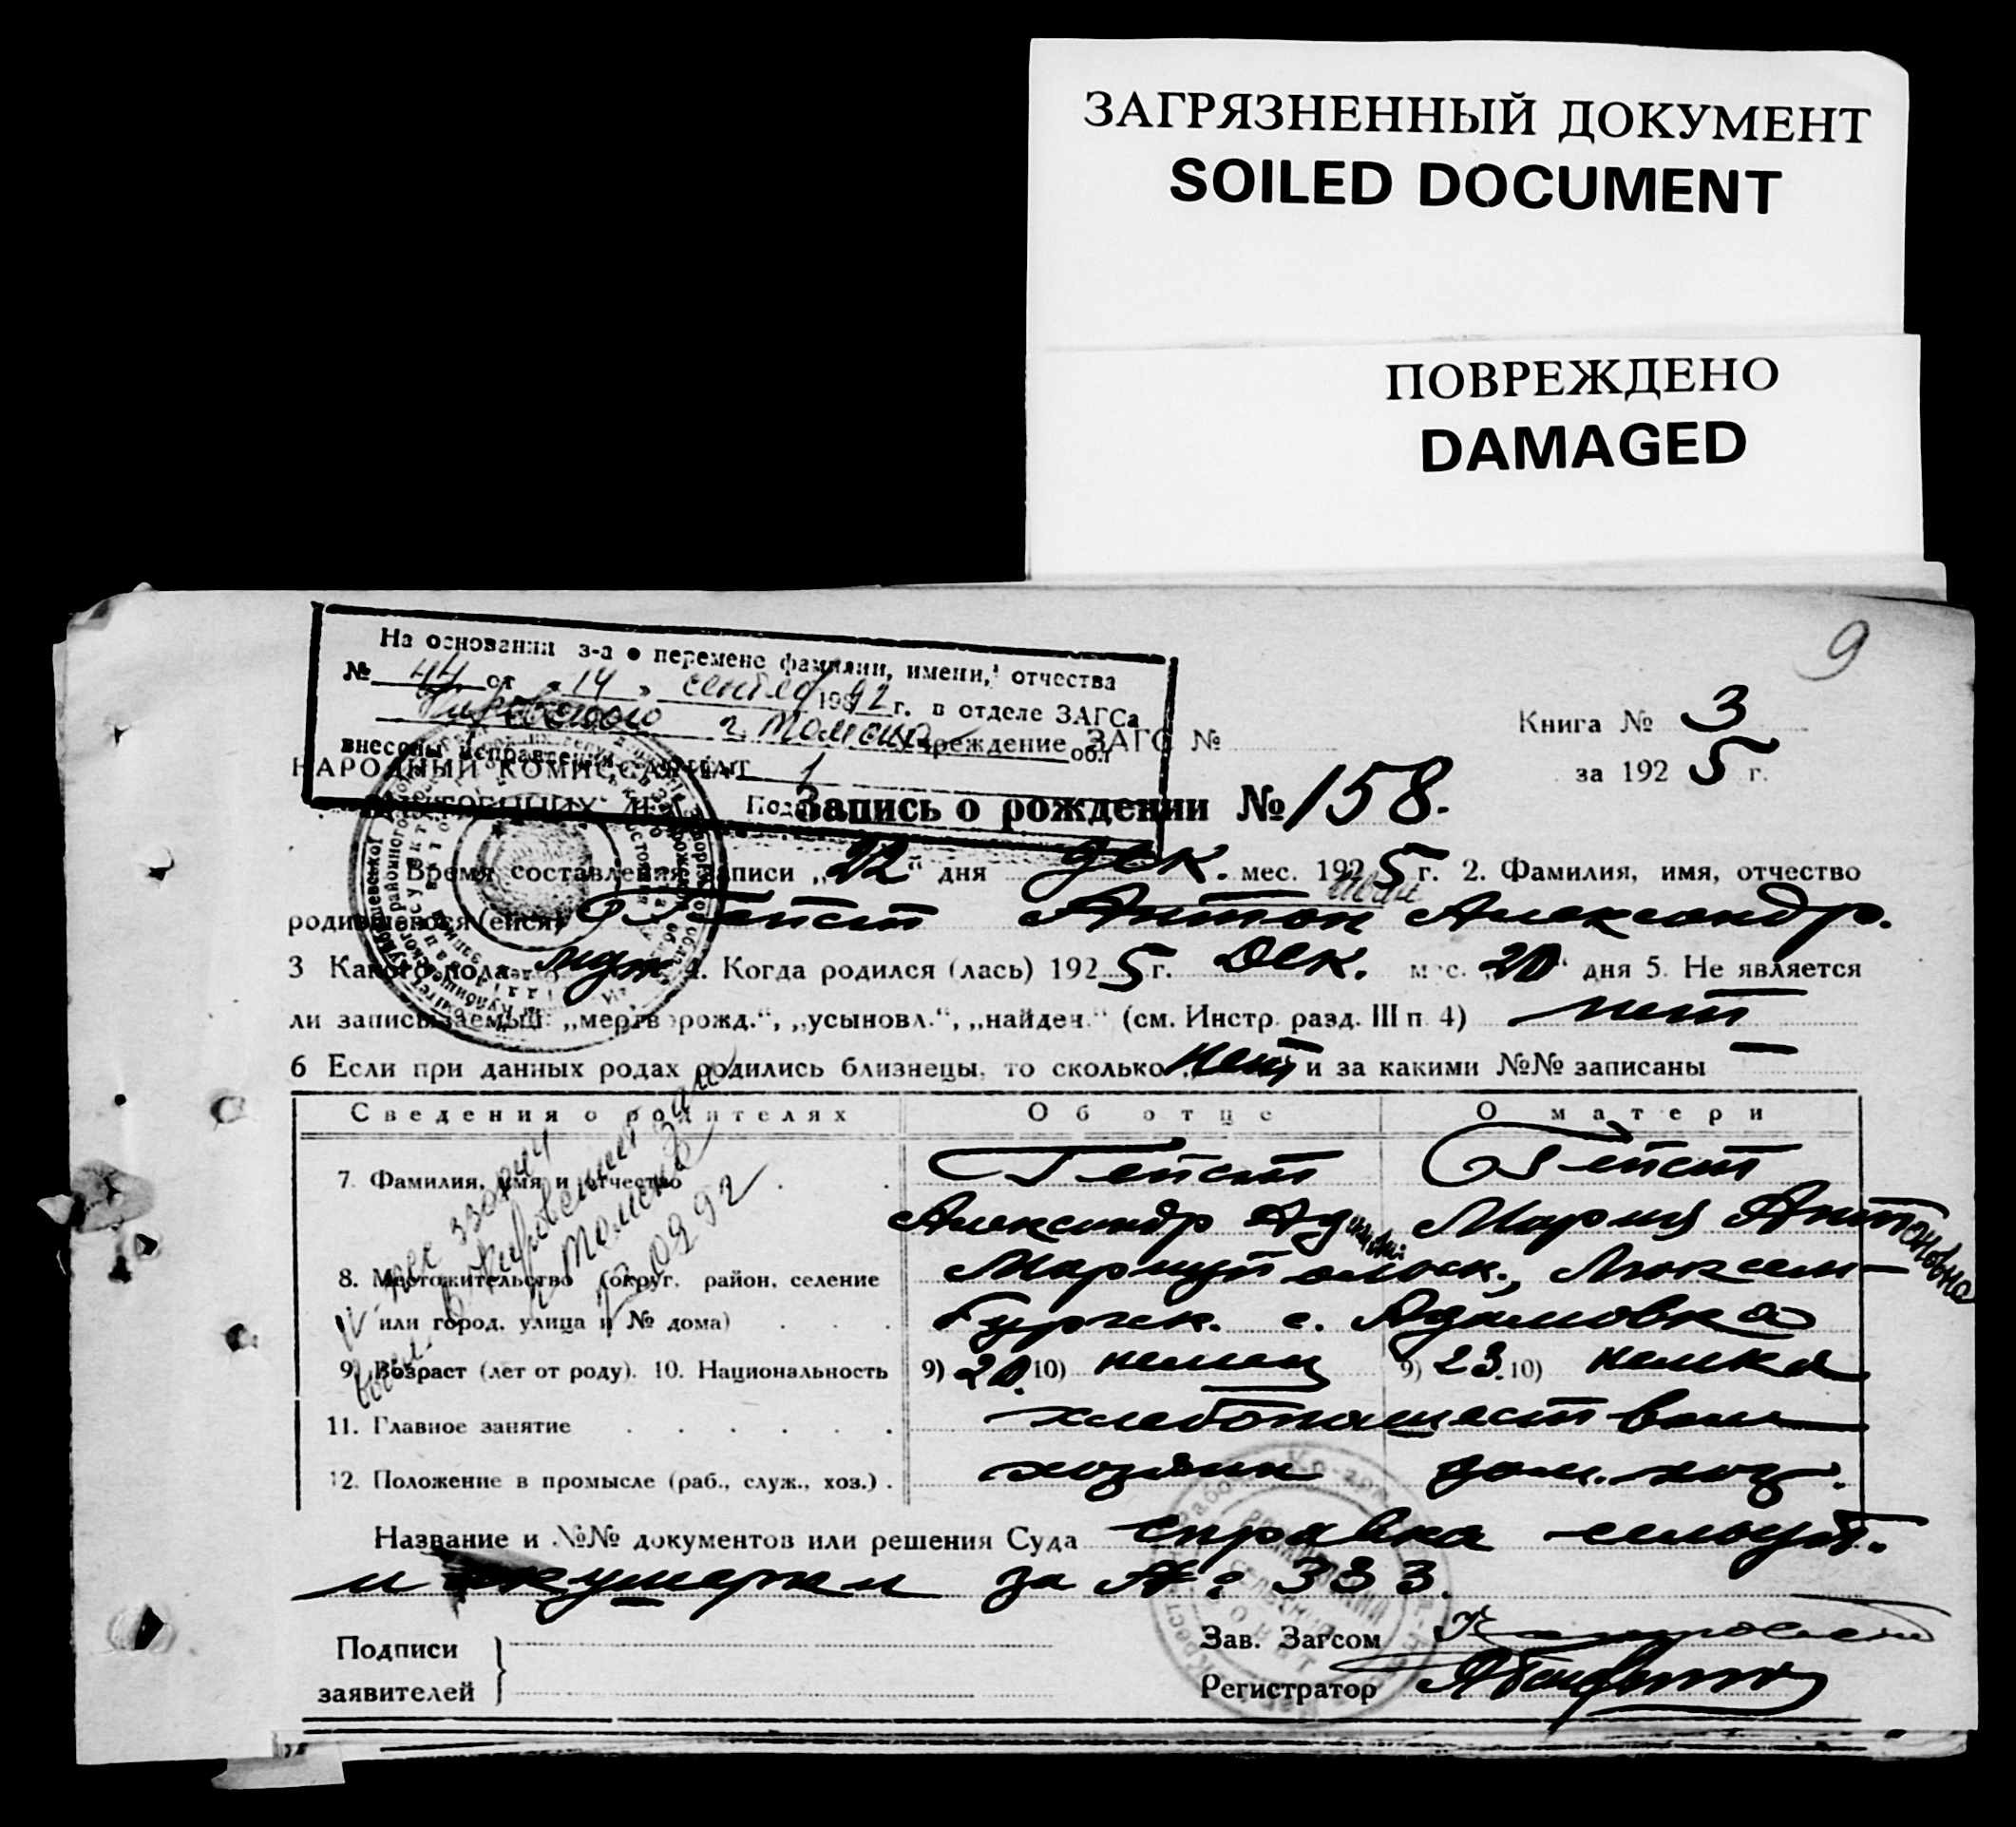 ЗАГРЯЗНЕННЫЙ ДОКУМЕНТ
SOILED DOCUMENT
ПОВРЕЖДЕНО
DAMAGED
9
На основании з-а о перемене фамилии, имени, отчества
№ 44 от 14 1992 г. в отделе ЗАГСа
Кировского г. Томска обл
внесены исправления 1
Книга № 3
за 1925 г.
учреждение ЗАГС №
НАРОДНЫЙ КОМИССАРИАТ
Запись о рождении № 158.
Время составления записи „22“ дня дек. мес. 1925 г. 2. Фамилия, имя, отчество
родившегося (ейся) Гейст Антон Александр.
3 Какого пола муж 4. Когда родился (лась) 1925 г. Дек. мес. „20“ дня 5. Не является
ли записываемый: „мертворожд.“, „усыновл.“, „найден.“ (см. Инстр. разд. III п 4) нет
6 Если при данных родах родились близнецы, то сколько нет и за какими №№ записаны —
Сведения о родителях Об отце О матери
7. Фамилия, имя и отчество Гейст Гейст
Александр Мария Антоновна
8. Местожительство (округ, район, селение Мариупольск., Люксем-
или город, улица и № дома) бургск. с. Адамовка
9. Возраст (лет от роду). 10. Национальность 9) 20. 10) немец 9) 23. 10) немка
11. Главное занятие хлебопашеством
12. Положение в промысле (раб., служ., хоз.) хозяин дом. хоз.
Название и №№ документов или решения Суда справка сельсов.
и акушерки за №: 333.
Подписи
заявителей
Зав. Загсом
Регистратор